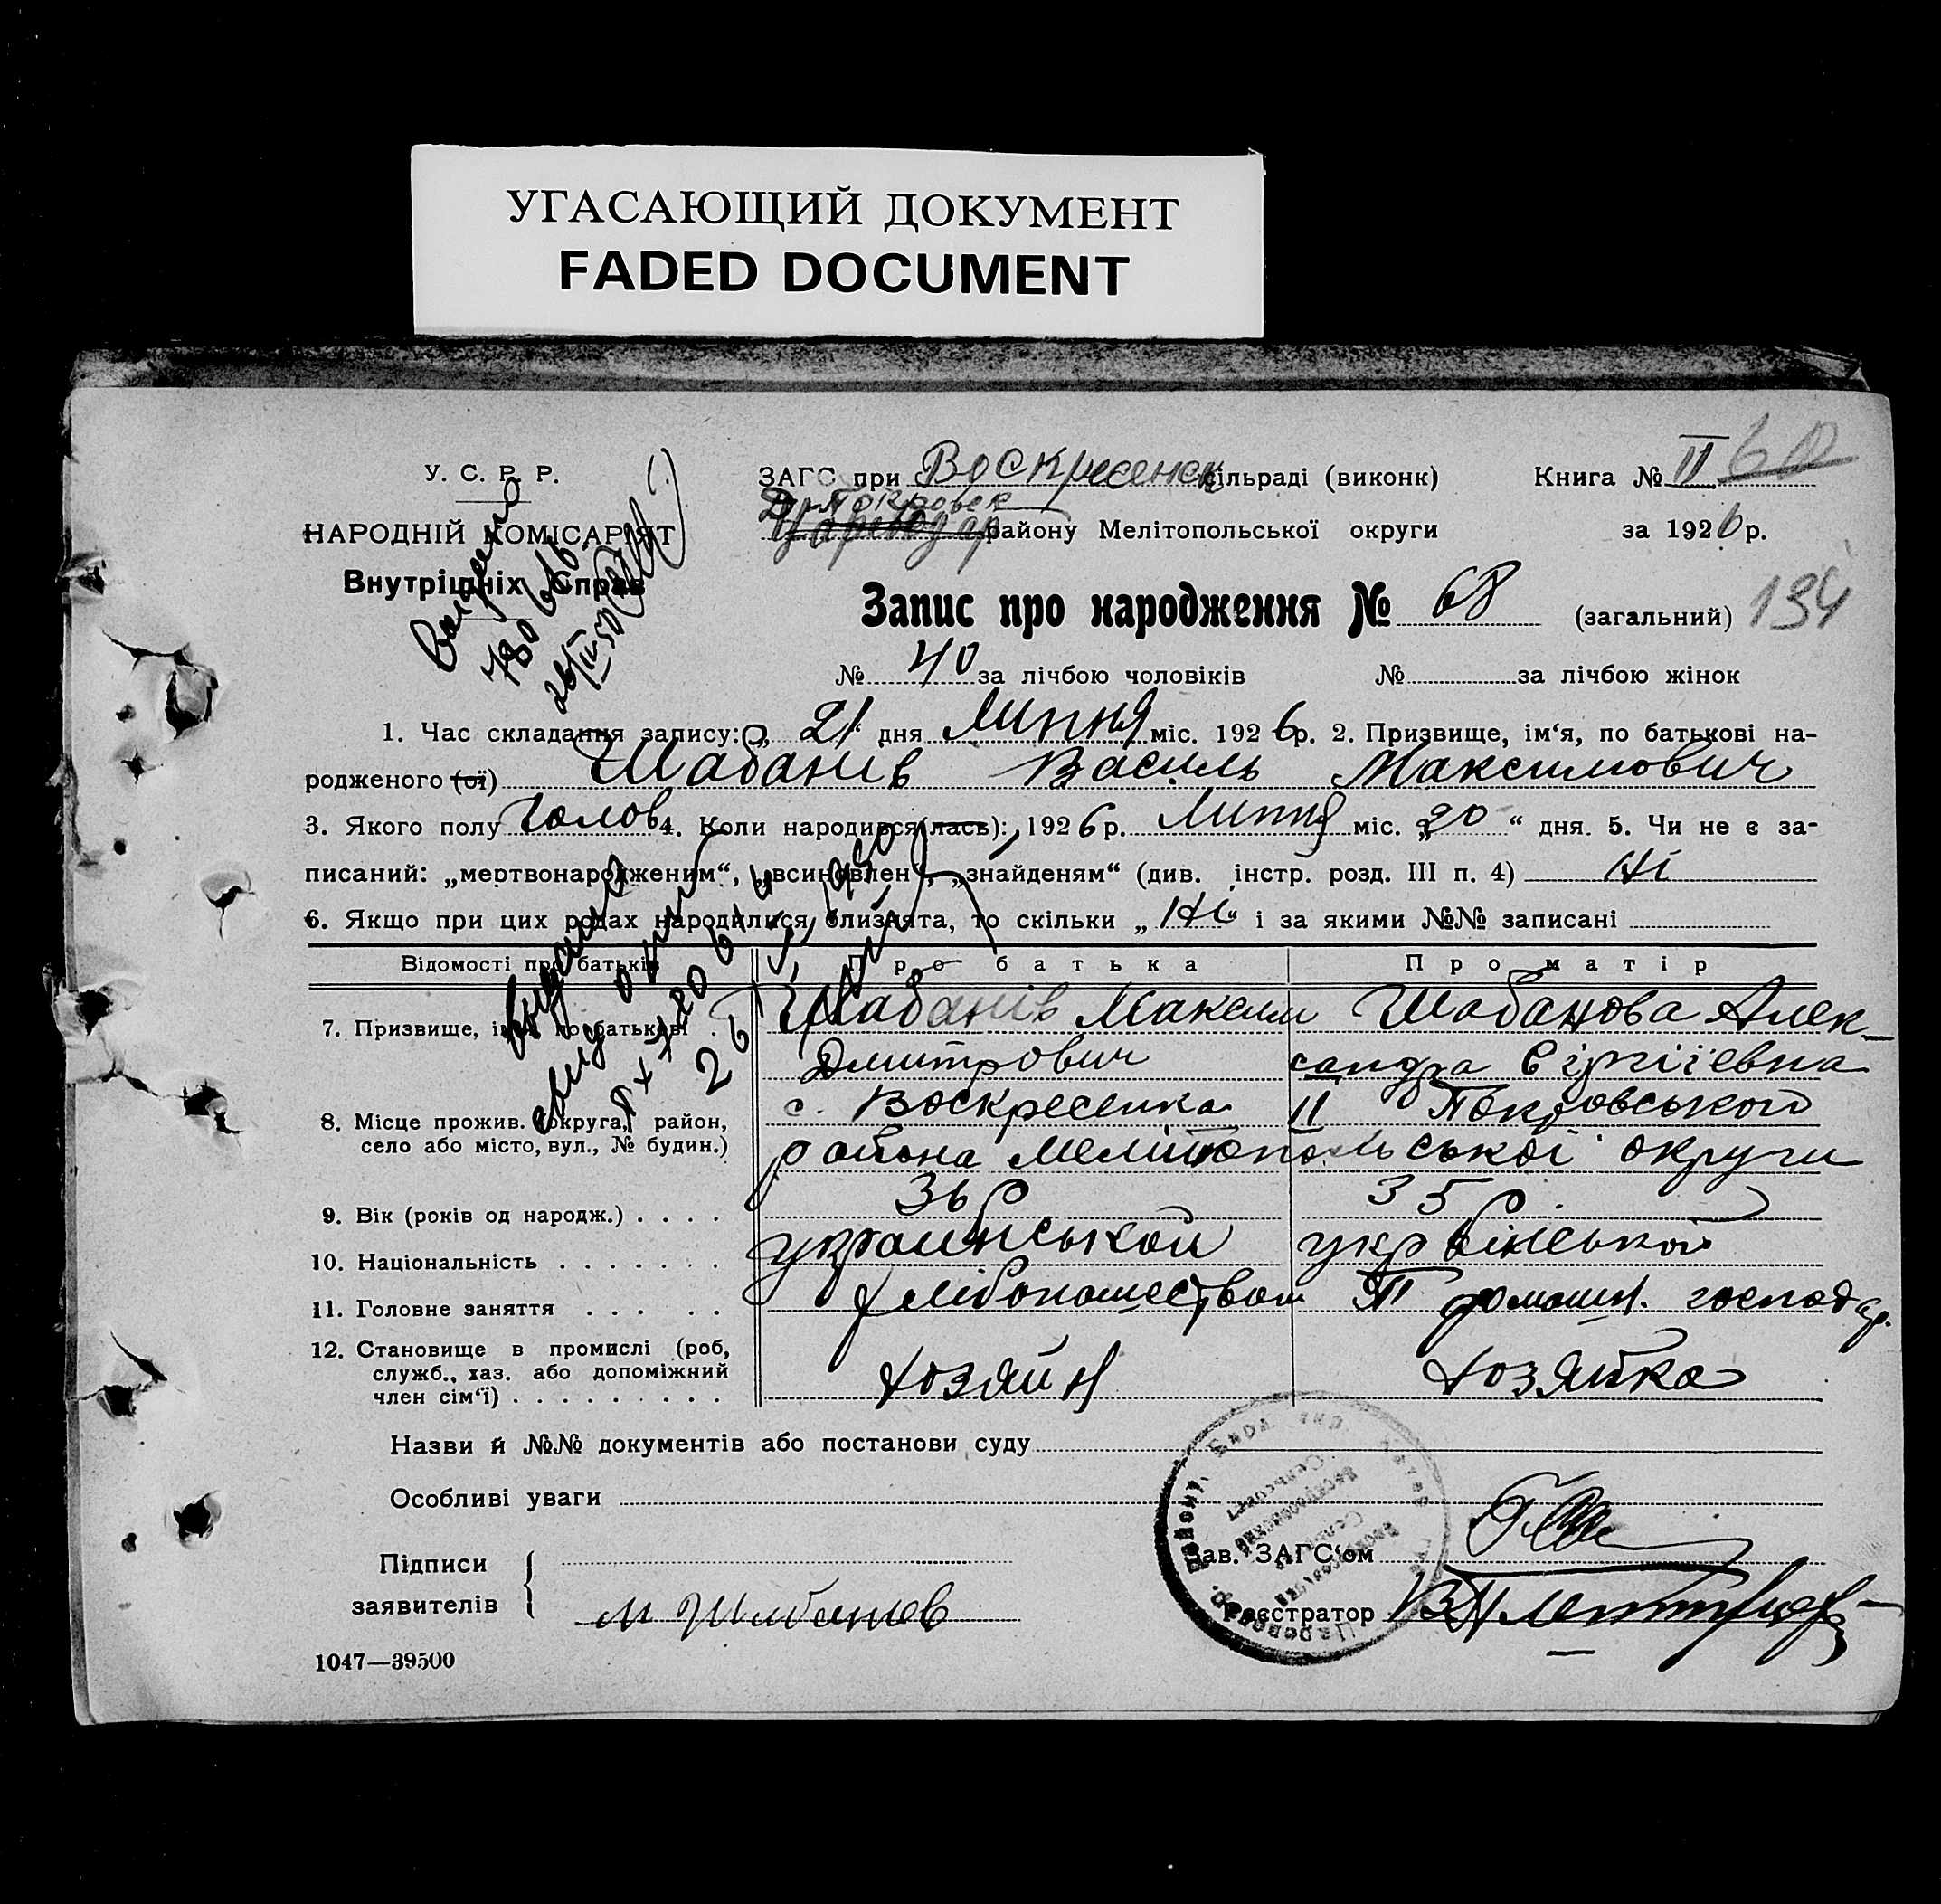 УГАСАЮЩИЙ ДОКУМЕНТ
FADED DOCUMENT
У. С. Р. Р.
НАРОДНІЙ КОМІСАРІЯТ
Внутрішніх Справ
ЗАГС при Воскресенск сільраді (виконк) Книга № II 60
Покровск
Цареводар району Мелітопольської округи за 1926 р.
Запис про народження № 68 (загальний) 134
№ 40 за лічбою чоловіків № за лічбою жінок
1. Час складання запису: „ 21 дня Липня міс. 1926 р. 2. Призвище, ім‘я, по батькові на-
родженого (ої) Шабанів Василь Максимович
3. Якого полу чолов 4. Коли народився (лась): 1926 р. Липня міс. „ 20 “ дня. 5. Чи не є за-
писаний: „мертвонародженим“, „всиновлен“, „знайденям“ (див. інстр. розд. III п. 4) Ні
6. Якщо при цих родах народилися близнята, то скільки „ Ні “ і за якими №№ записані
Відомості про батьків Про батька Про матір
7. Призвище, ім‘я, по батькові Шабанів Максим Шабанова Алек-
Дмитрович сандра Сіргіївна
8. Місце прожив. (округа, район, с. Воскресенка II Покровського
село або місто, вул., № будин.) района Мелітопольської округи
9. Вік (років од народж.) 36 р 35 р.
10. Національність
11. Головне заняття домашн. господар.
12. Становище в промислі (роб,
служб., хаз. або допоміжний
член сім‘ї) хозяин хозяйка
Назви й №№ документів або постанови суду
Особливі уваги
Підписи
заявителів М Шабанов
Зав. ЗАГС‘ом
Реєстратор
1047—39500